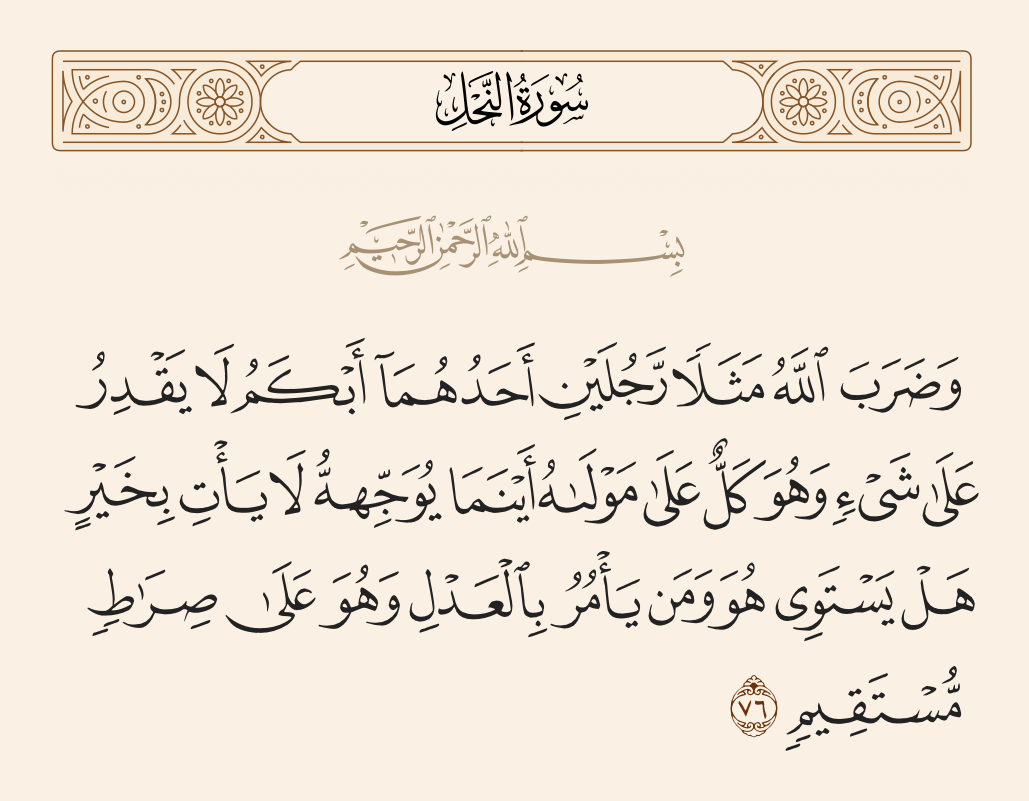 سُورَةُ النَّحْلِ
بِسْمِ ٱللَّهِ ٱلرَّحْمَٰنِ ٱلرَّحِيمِ
وَضَرَبَ ٱللَّهُ مَثَلًا رَّجُلَيْنِ أَحَدُهُمَآ أَبْكَمُ لَا يَقْدِرُ
عَلَىٰ شَىْءٍ وَهُوَ كَلٌّ عَلَىٰ مَوْلَىٰهُ أَيْنَمَا يُوَجِّههُّ لَا يَأْتِ بِخَيْرٍ
هَلْ يَسْتَوِى هُوَ وَمَن يَأْمُرُ بِٱلْعَدْلِ وَهُوَ عَلَىٰ صِرَٰطٍ
مُّسْتَقِيمٍ ٧٦